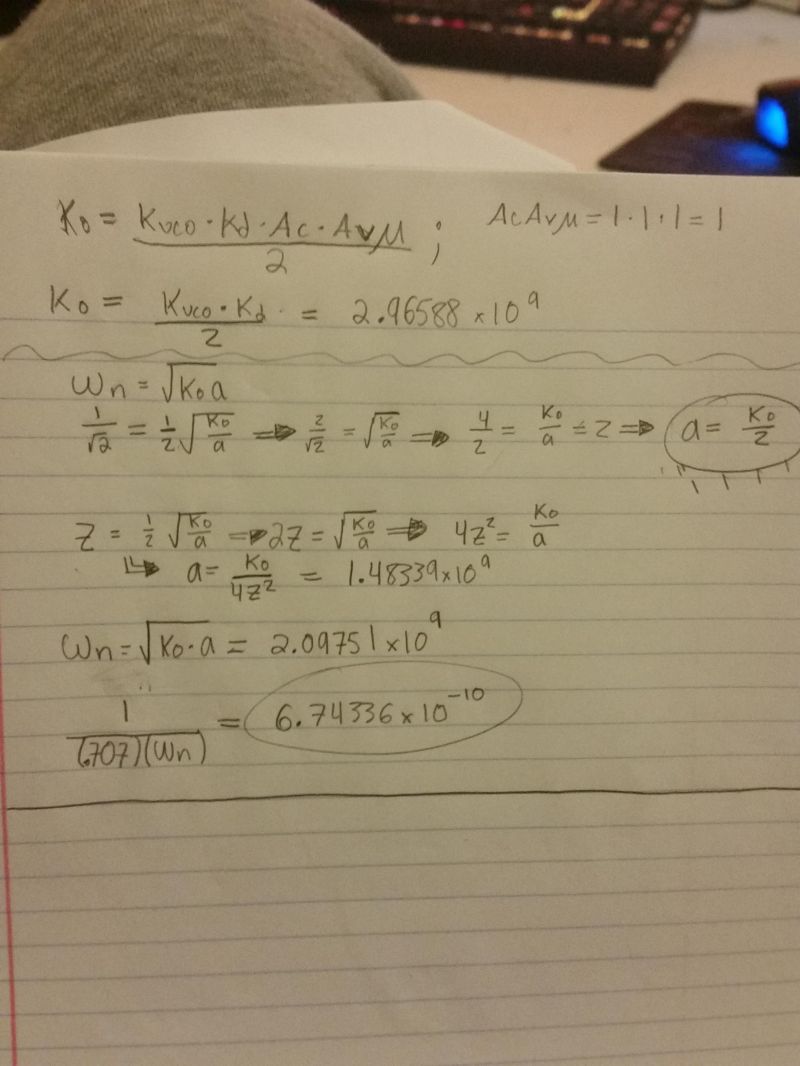 Ko = Kvco · Kd · Ac · AvM / 2 ; AcAvM = 1 · 1 · 1 = 1
Ko = Kvco · Kd / 2 = 2.96588 x 10^9
Wn = √Ko a
1/√2 = 1/2 √Ko/a ⇒ 2/√2 = √Ko/a ⇒ 4/2 = Ko/a = 2 ⇒ a = Ko/2
Z = 1/2 √Ko/a ⇒ 2Z = √Ko/a ⇒ 4Z² = Ko/a
↳ a = Ko/4Z² = 1.48339 x 10^9
Wn = √Ko · a = 2.09751 x 10^9
1/(.707)(Wn) = 6.74336 x 10^-10